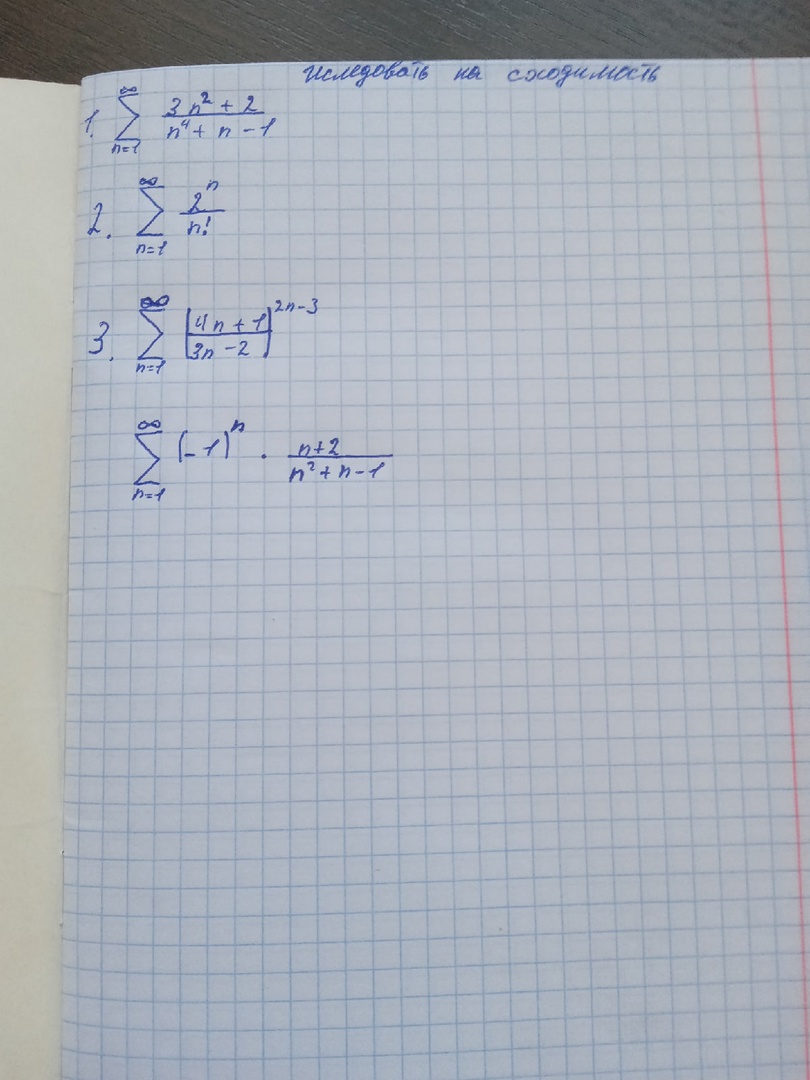 Иследовать на сходимость
1. ∞ ∑ n=1 (3n² + 2)/(n⁴ + n - 1)
2. ∞ ∑ n=1 2ⁿ/n!
3. ∞ ∑ n=1 [(4n + 1)/(3n - 2)]²ⁿ⁻³
∞ ∑ n=1 (-1)ⁿ · (n+2)/(n² + n - 1)